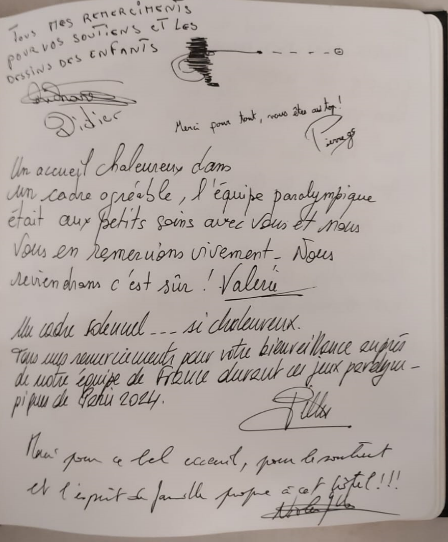 TOUS MES REMERCIMENTS
POUR VOS SOUTIENS ET LES
DESSINS DES ENFANTS
Didier
Merci pour tout, vous êtes au top!
Un accueil chaleureux dans
un cadre agréable, l'équipe paralympique
était aux petits soins avec vous et nous
vous en remerions vivement. Nous
reviendrons c'est sûr ! Valérie
Un cadre solennel --- si chaleureux.
Tous mes remerciements pour votre bienveillance auprès
de notre équipe de France durant ces jeux paralym-
piques de Paris 2024.
Merci pour ce bel accueil, pour le soutient
et l'esprit de famille propre à cet hôtel!!!